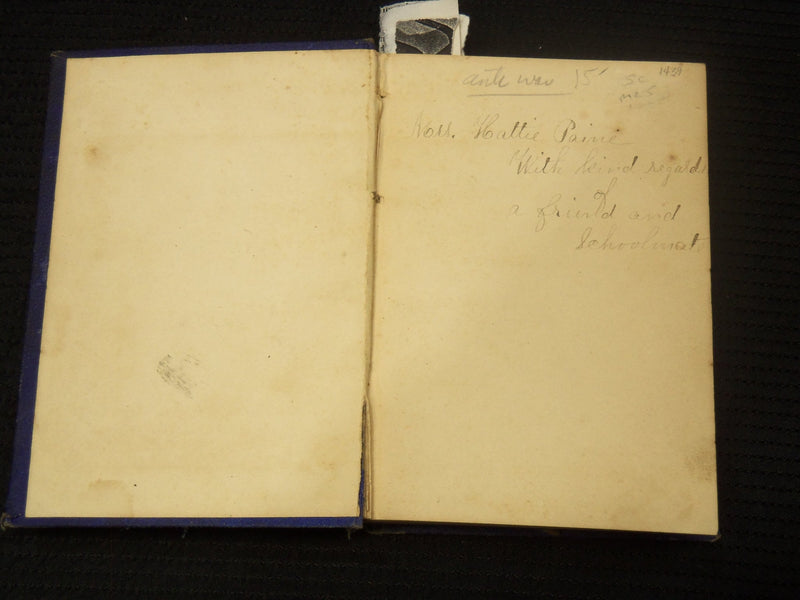 ante war 15'
1439
Hattie Paine
With kind regards
of
a friend and
Schoolmat